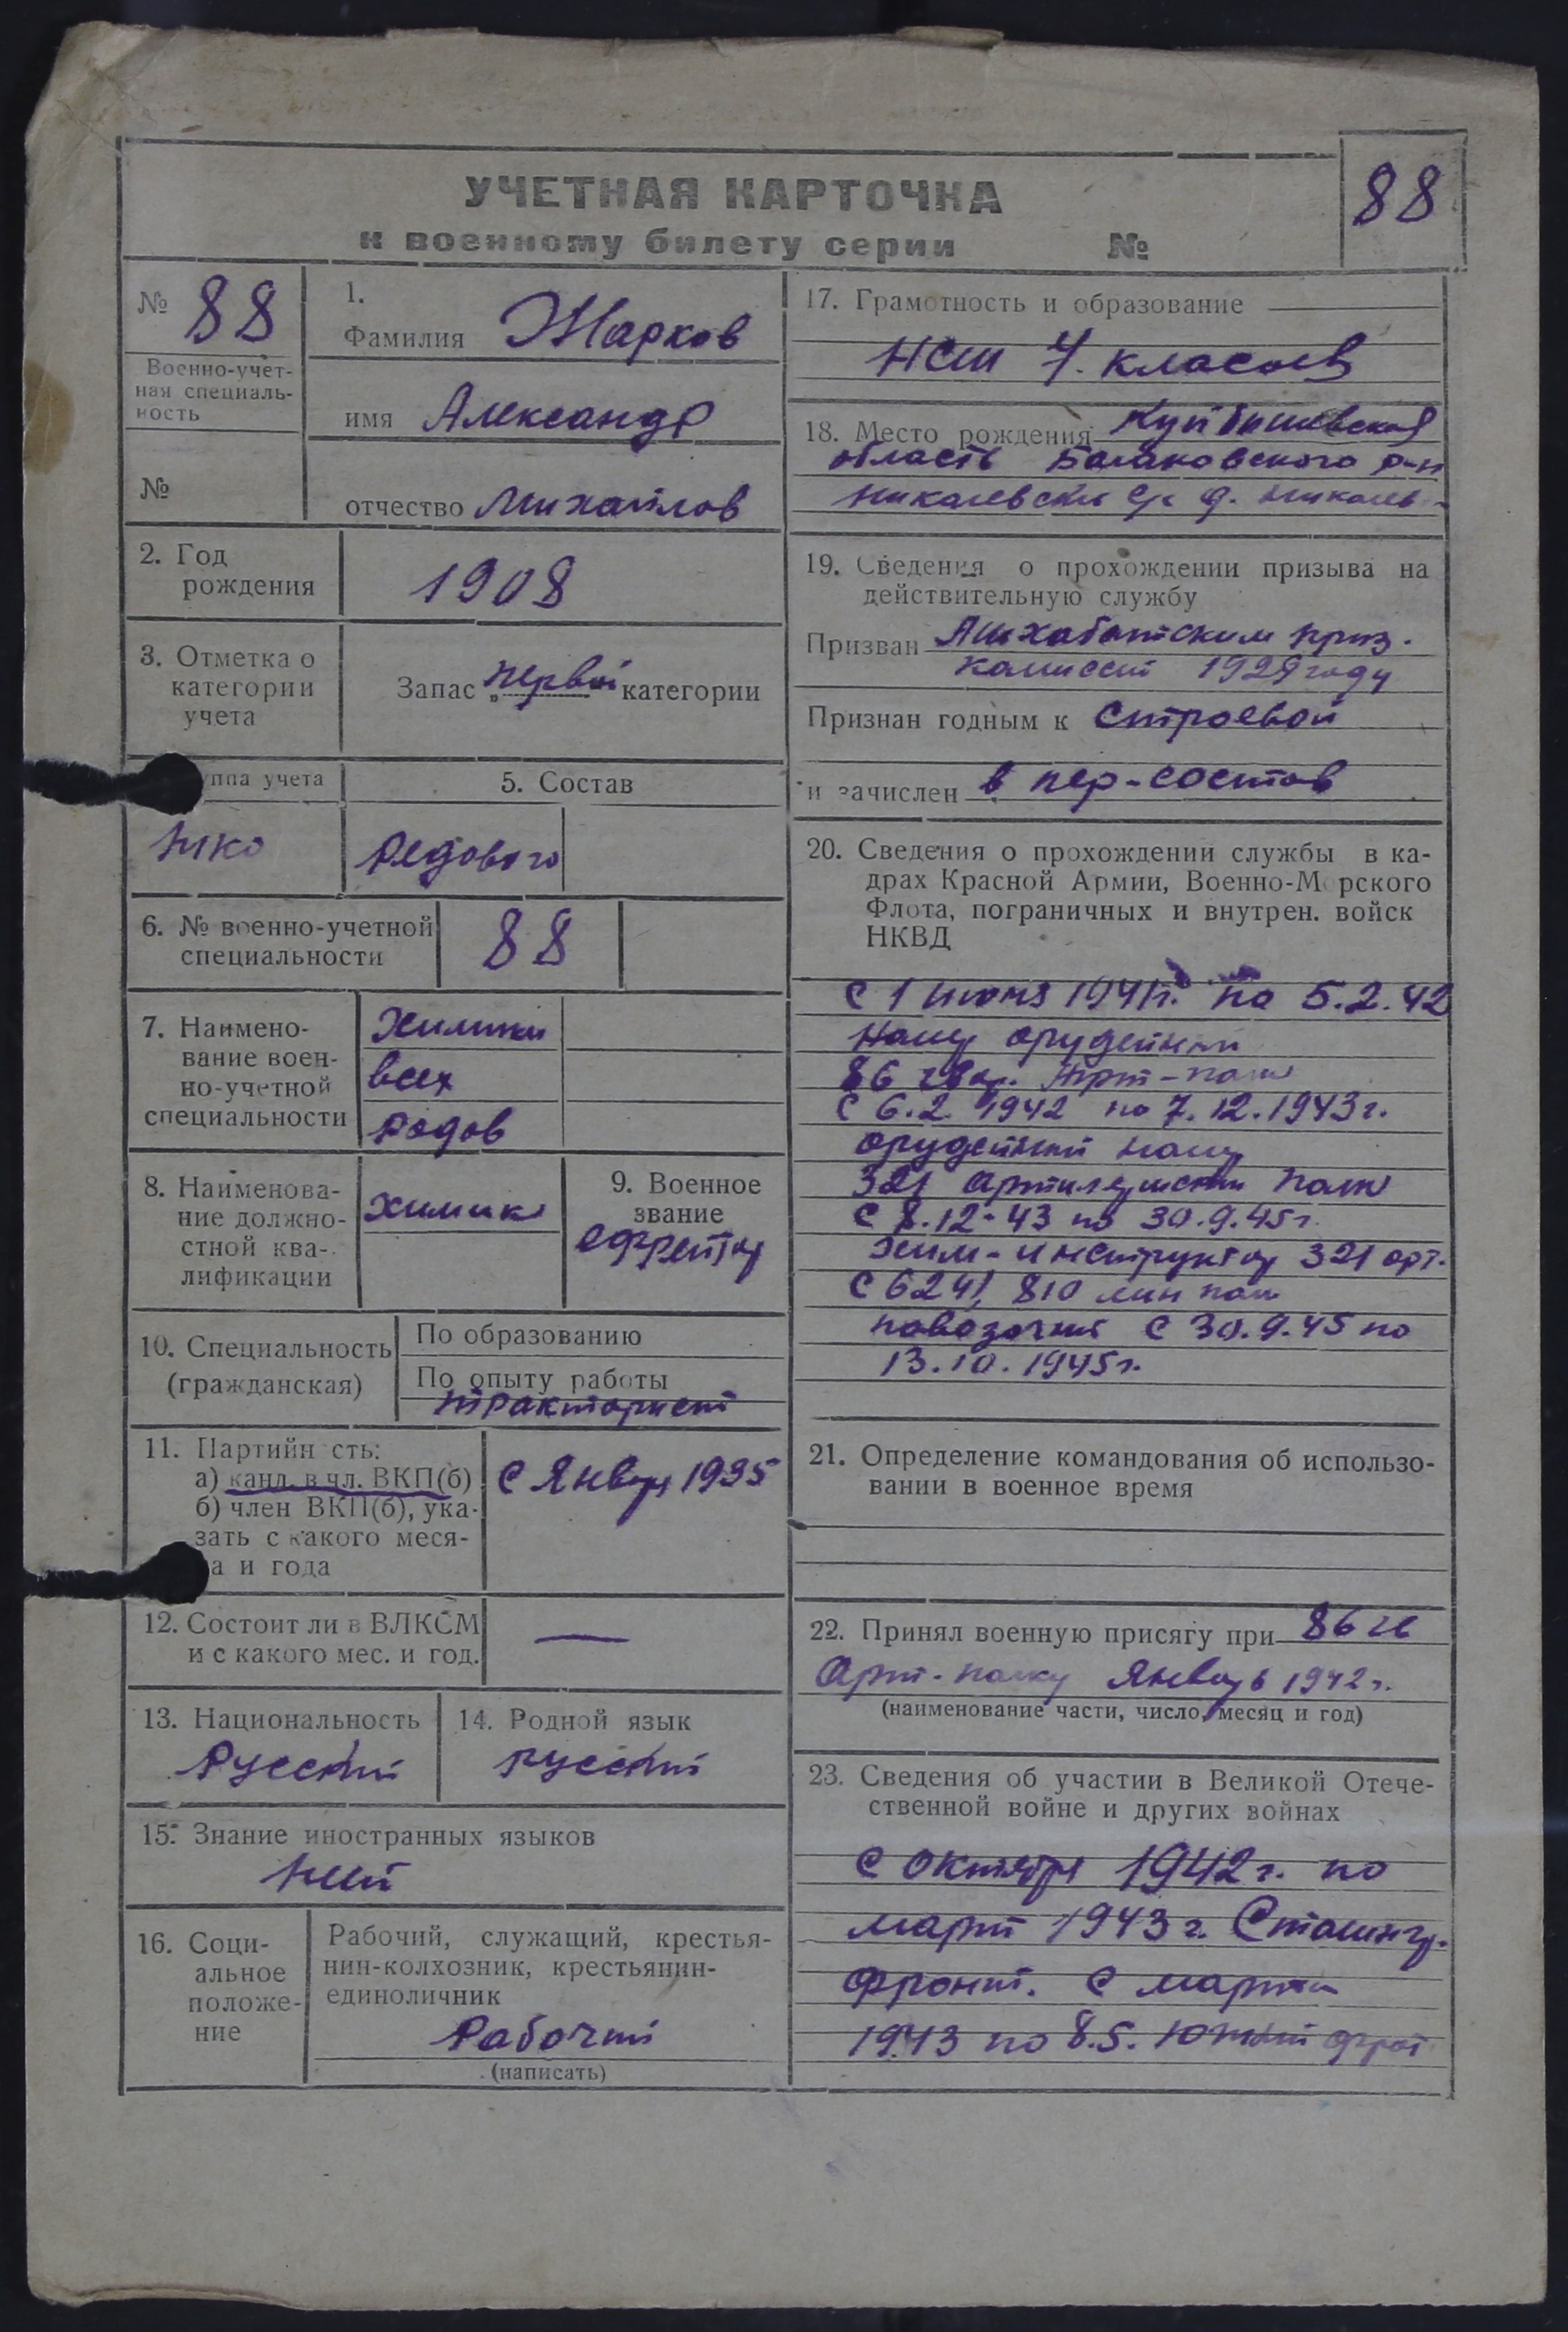 УЧЕТНАЯ КАРТОЧКА
к военному билету серии №
88
№ 88
Военно-учет-
ная специаль-
ность
№
1.
Фамилия Жарков
имя Александр
отчество Михайлов
2. Год
рождения
1908
3. Отметка о
категории
учета
Запас „первой" категории
уппа учета
5. Состав
Редового
6. № военно-учетной
специальности
88
7. Наимено-
вание воен-
но-учетной
специальности
Химики
всех
родов
8. Наименова-
ние должно-
стной ква-
лификации
химик
9. Военное
звание
ефрейтор
10. Специальность
(гражданская)
По образованию
По опыту работы
тракторист
11. Партийн сть:
а) канд. в чл. ВКП(б)
б) член ВКП(б), ука-
зать с какого меся-
а и года
С Январ 1935
12. Состоит ли в ВЛКСМ
и с какого мес. и год.
—
13. Национальность
Русский
14. Родной язык
русский
15. Знание иностранных языков
Нет
16. Соци-
альное
положе-
ние
Рабочий, служащий, крестья-
нин-колхозник, крестьянин-
единоличник
Рабочий
(написать)
17. Грамотность и образование
НСШ 7. класов
18. Место рождения Куйбишевская
область Балаковского р-н
Николевский с/с д. Николев-
19. Сведения о прохождении призыва на
действительную службу
Призван Ашхабатским приз.
комиссий 1929 году
Признан годным к Строевой
и зачислен в пер-состав
20. Сведения о прохождении службы в ка-
драх Красной Армии, Военно-Морского
Флота, пограничных и внутрен. войск
НКВД
С 1 1941г. по 5.2.42
орудейный
86 гвар. Арт-полк
С 6.2 1942 по 7.12.1943г.
орудейный
321 полк
С 8.12-43 по 30.9.45г.
Хим-инструктор 321 арт.
С 6241, 810 мин пол
повозочный С 30.9.45 по
13.10.1945г.
21. Определение командования об использо-
вании в военное время
22. Принял военную присягу при 86 гв
Арт-полку Январь 1942г.
(наименование части, число, месяц и год)
23. Сведения об участии в Великой Отече-
ственной войне и других войнах
С октября 1942г. по
март 1943 г. Сталингр.
фронт. С марта
1943 по 8.5. Южный фрот